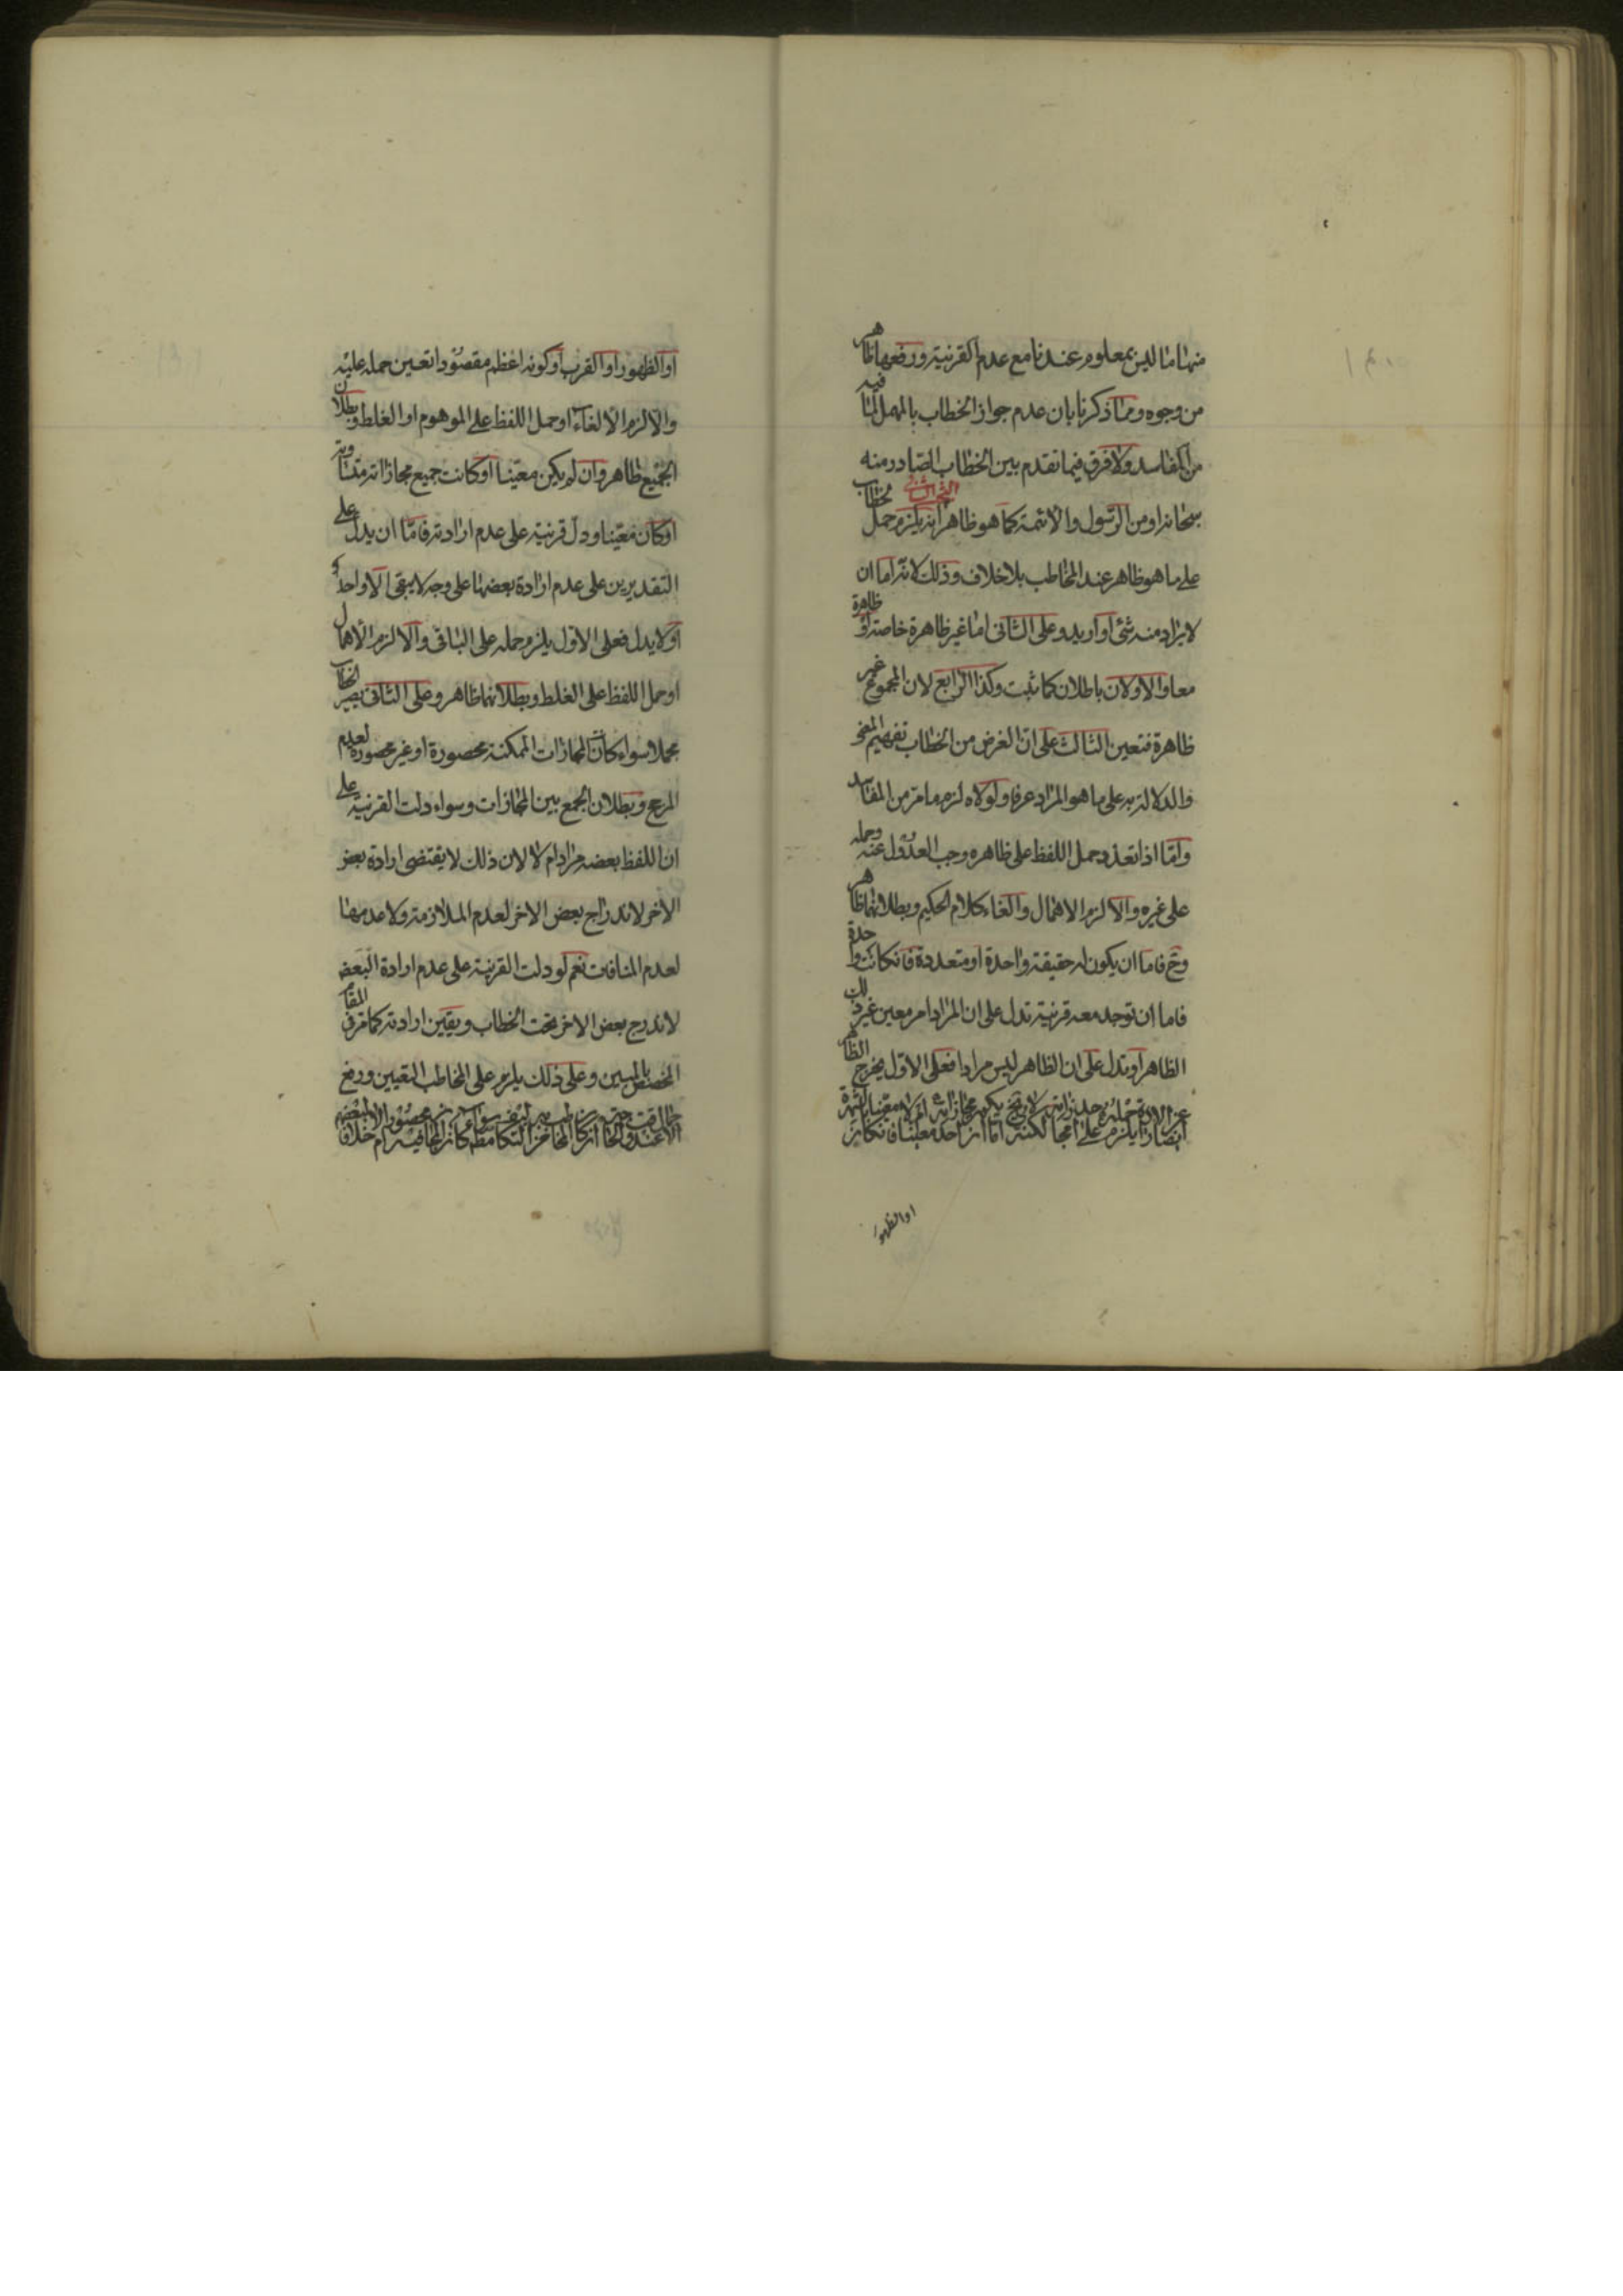 منها ما ليس بمعلوم عندنا مع عدم القرنية ورفعها ظاهر
من وجوه ومما ذكرنا بان عدم جواز الخطاب بالمهمل لما فيه
من المفاسد ولا فرق فيما تقدم بين الخطاب الصادر منه
سبحانه او من الرسول والائمة كما هو ظاهر البحث الثاني انه يلزم حمل خطاب
على ما هو ظاهر عند المخاطب بلا خلاف وذلك لانه اما ان
لا يراد منه شئ او اريد وعلى الثاني اما غير ظاهرة خاصة او ظاهرة
معا والاولان باطلان كما ثبت وكذا الرابع لان المجموع غير
ظاهرة فتعين الثالث على ان الغرض من الخطاب تفهيم المعنى
والدلالة به على ما هو المراد عرفا ولولاه لزم ما مر من المفاسد
واما اذا تعذر حمل اللفظ على ظاهره وجب العدول عنه وحمله
على غيره والا لزم الاهمال والغاء كلام الحكيم وبطلانهما ظاهر
وح فاما ان يكون له حقيقة واحدة او متعددة فان كانت واحدة
فاما ان توجد معه قرنية تدل على ان المراد امر معين غير ذلك
الظاهر او تدل على ان الظاهر ليس مرادا فعلى الاول يخرج الظاهر
او الظهور
او الظهور او القرب او كونه اعظم مقصودا تعين حمله عليه
والا لزم الالغاء او حمل اللفظ على الموهوم او الغلط وبطلان
الجميع ظاهر وان لم يكن معينا او كانت جميع مجازاته متساوية
او كان معينا ودل قرنية على عدم ارادته فاما ان يدل على
التقديرين على عدم ارادة بعضها على وجه لا يبقى الا واحد
او لا يدل فعلى الاول يلزم حمله على الباقي والا لزم الاهمال
او حمل اللفظ على الغلط وبطلانهما ظاهر وعلى الثاني يصير الخطاب
مجملا سواء كان المجازات الممكنة محصورة او غير محصورة لعدم
المرجح وبطلان الجمع بين المجازات وسواء دلت القرنية على
ان اللفظ بعضه مراد ام لا لان ذلك لا يقتضى ارادة بعض
الاخر لاندراج بعض الاخر لعدم الملازمة ولا عدمها
لعدم المنافات نعم لو دلت القرنية على عدم ارادة البعض
لاندرج بعض الاخر تحت الخطاب ويقين ارادته كما مر في المقام
المخصص بالمبين وعلى ذلك يلزم على المخاطب التعيين ورفع